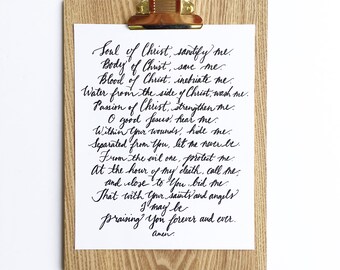 Soul of Christ, sanctify me.
Body of Christ, save me.
Blood of Christ, inebriate me.
Water from the side of Christ, wash me.
Passion of Christ, strengthen me.
O good Jesus, hear me.
Within Your wounds, hide me.
Separated from You, let me never be.
From the evil one, protect me.
At the hour of my death, call me
and close to You bid me
That with Your saints and angels
I may be
praising You forever and ever.
amen.